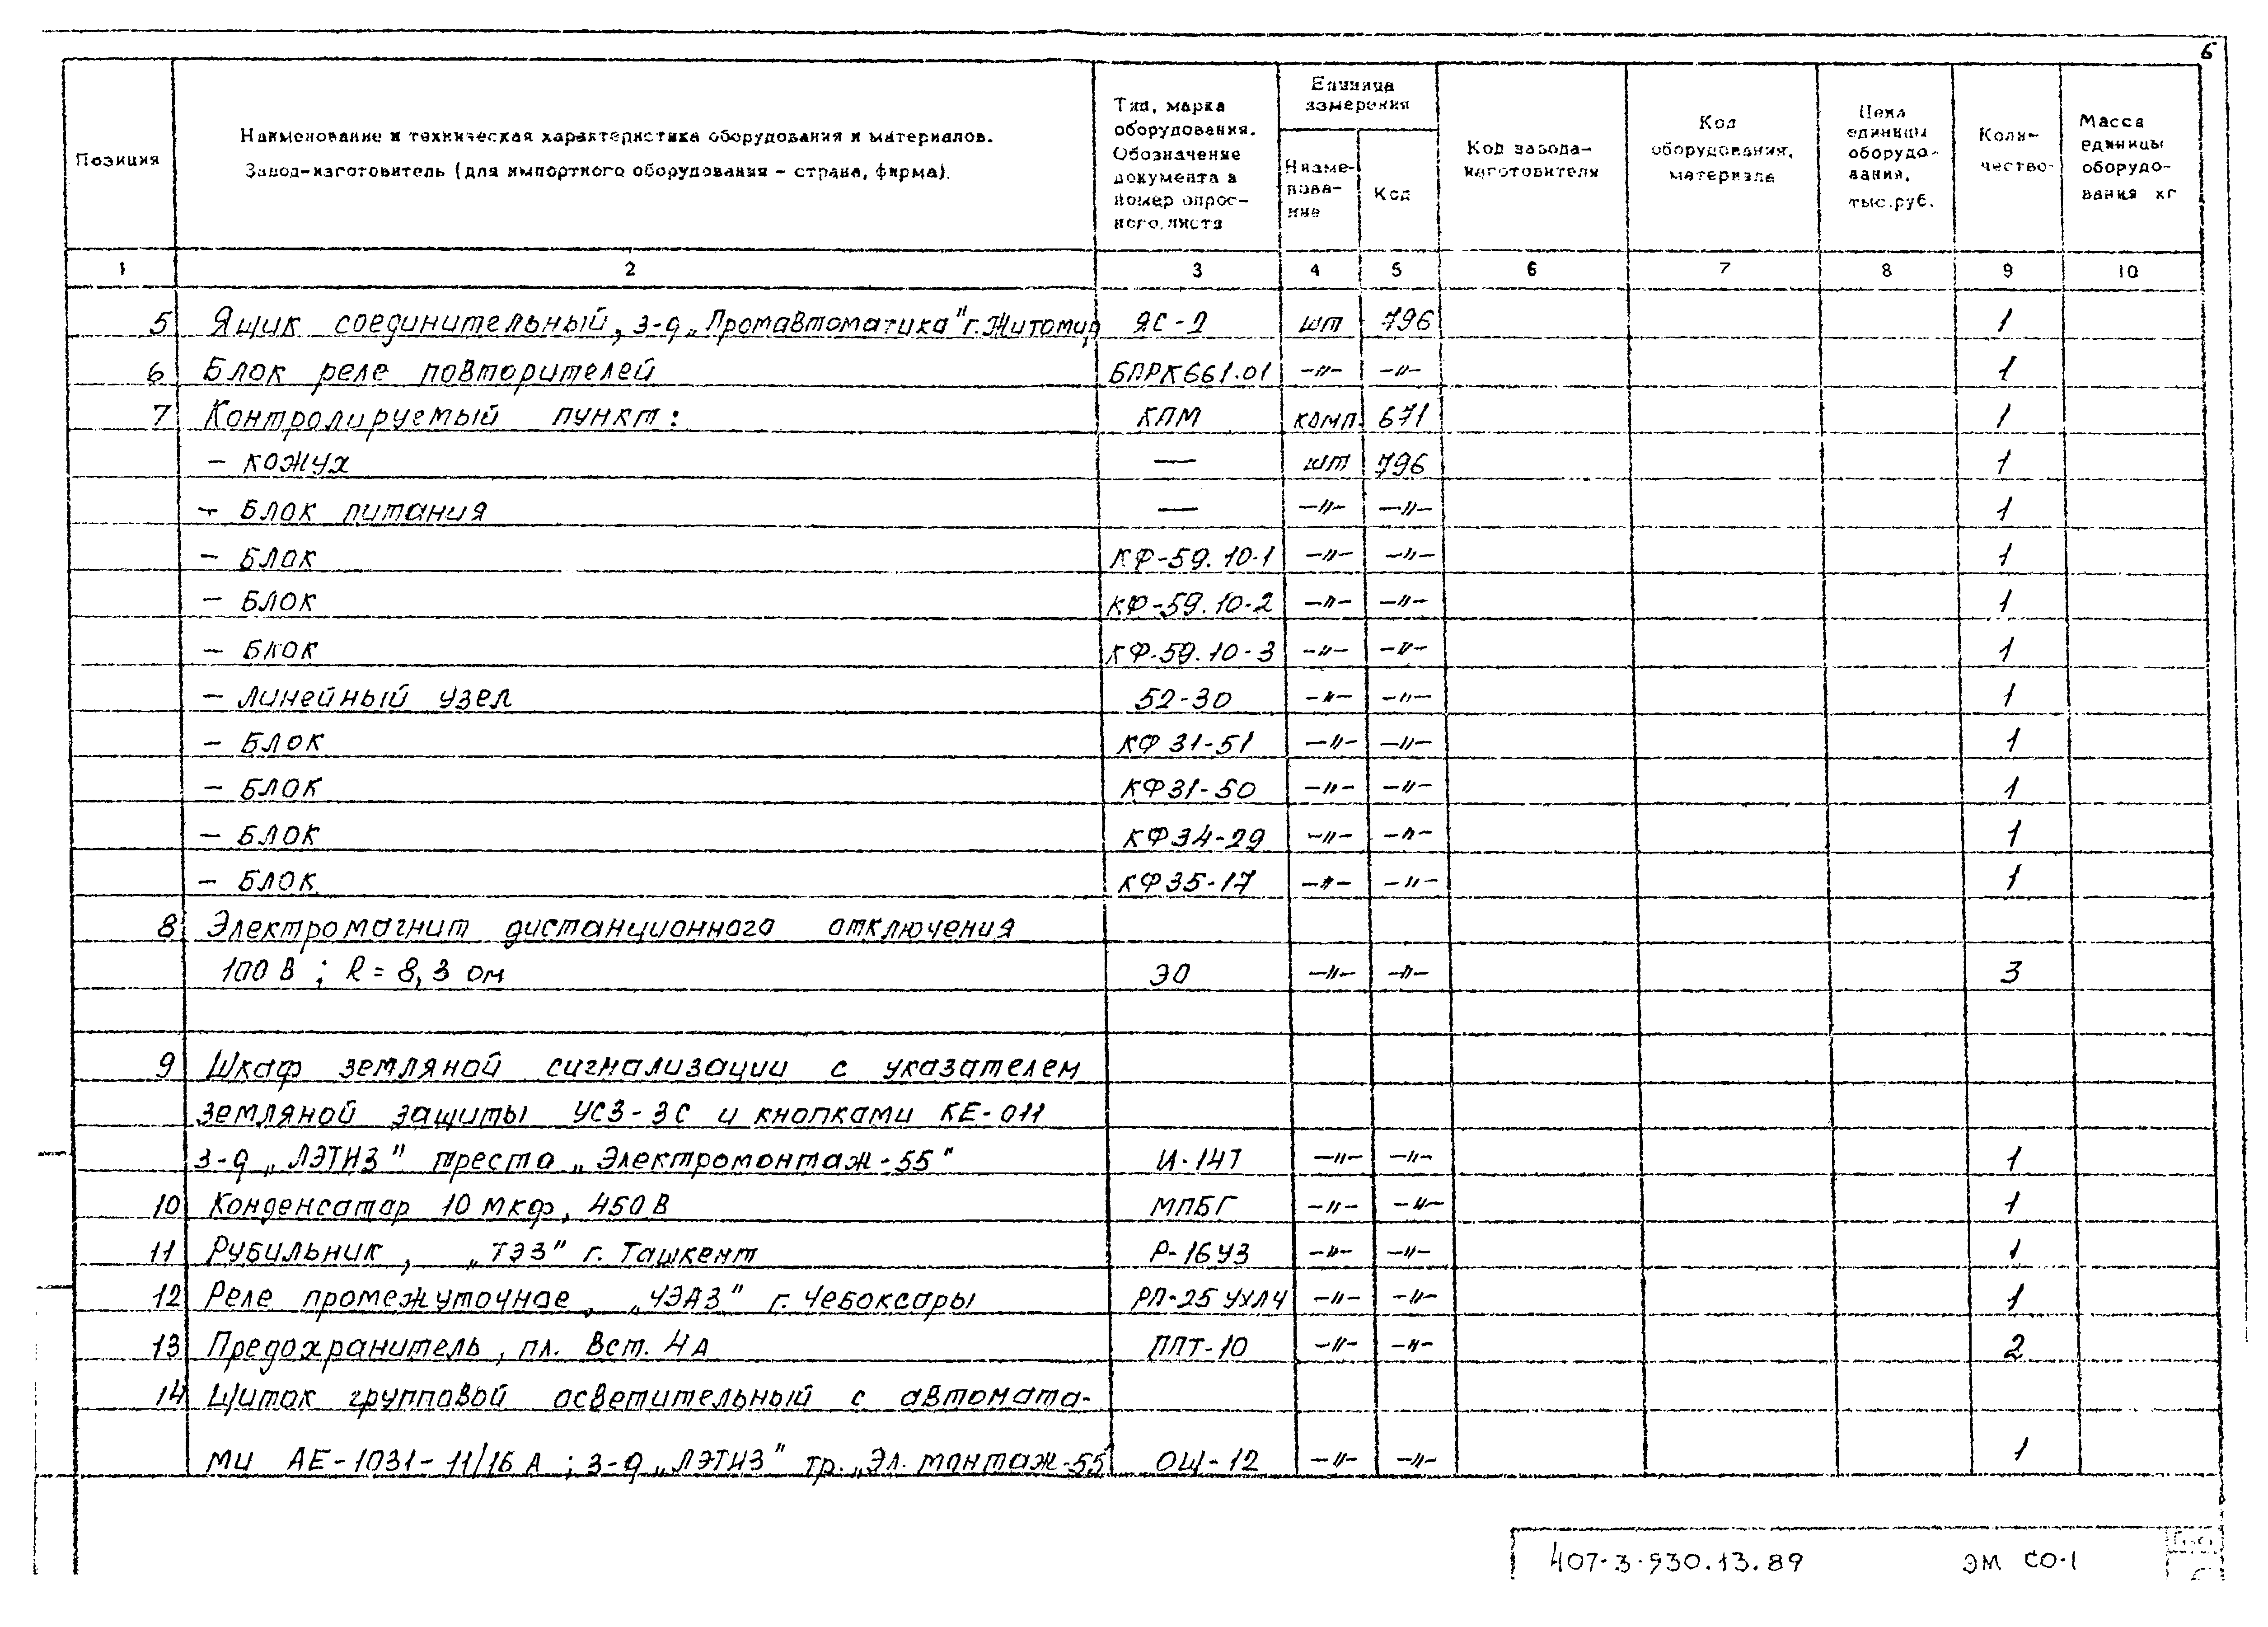 6
Позиция
Наименование и техническая характеристика оборудования и материалов.
Завод-изготовитель (для импортного оборудования - страна, фирма).
Тип, марка
оборудования.
Обозначение
документа и
номер опрос-
ного листа
Единица
измерения
Наиме-
нова-
ние
Код
Код завода-
изготовителя
Код
оборудования,
материала
Цена
единицы
оборудо-
вания,
тыс.руб.
Коли-
чество
Масса
единицы
оборудо-
вания кг
1 2 3 4 5 6 7 8 9 10
5 Ящик соединительный, з-д „Промавтоматика" г. Житомир ЯС-2 шт 796 1
6 Блок реле повторителей БПРК661.01 -"- -"- 1
7 Контролируемый пункт: КПМ компл. 671 1
- кожух — шт 796 1
- Блок питания — -"- -"- 1
- Блок КФ-59.10-1 -"- -"- 1
- Блок КФ-59.10-2 -"- -"- 1
- Блок КФ-59.10-3 -"- -"- 1
- линейный узел 52-30 -"- -"- 1
- Блок КФ 31-51 -"- -"- 1
- Блок КФ31-50 -"- -"- 1
- Блок КФ34-29 -"- -"- 1
- Блок КФ35-17 -"- -"- 1
8 Электромагнит дистанционного отключения
100 В ; R = 8,3 ом ЭО -"- -"- 3
9 Шкаф земляной сигнализации с указателем
земляной защиты УСЗ-3С и кнопками КЕ-011
з-д „ЛЭТИЗ" треста „Электромонтаж-55" И-147 -"- -"- 1
10 Конденсатор 10 мкф, 450 В МПБГ -"- -"- 1
11 Рубильник, „ТЭЗ" г. Ташкент Р-16У3 -"- -"- 1
12 Реле промежуточное, „ЧЭАЗ" г. Чебоксары РП-25 УХЛ4 -"- -"- 1
13 Предохранитель, пл. вст. 4А ППТ-10 -"- -"- 2
14 Щиток групповой осветительный с автомата-
ми АЕ-1031-11/16 А ; з-д „ЛЭТИЗ" тр. „Эл. монтаж-55 ОЩ-12 -"- -"- 1
407-3-530.13.89 ЭМ СО-1